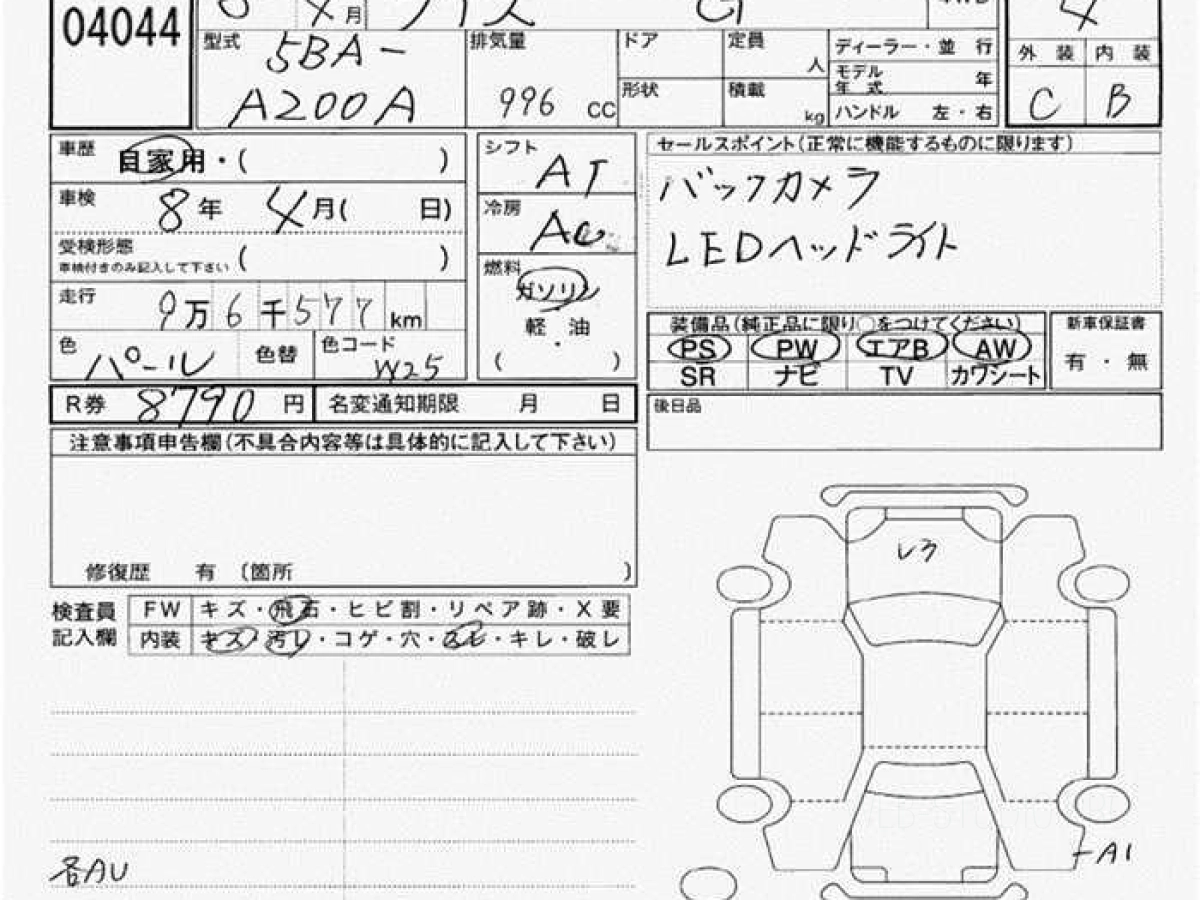 04044
月
型式 5BA-
A200A
排気量
996 cc
ドア
形状
定員 人
積載 kg
ディーラー・並 行
モデル年式 年
ハンドル 左・右
4
外 装 内 装
C B
車歴 自家用・( )
車検 8年 4月( 日)
受検形態
車検付きのみ記入して下さい ( )
走行 9万6千577km
色 パール 色替 色コード W25
シフト AT
冷房 AC
燃料 ガソリン
軽 油
・
( )
セールスポイント(正常に機能するものに限ります)
バックカメラ
LEDヘッドライト
装備品(純正品に限り○をつけてください)
PS PW エアB AW
SR ナビ TV カワシート
新車保証書
有・無
R券 8790円 名変通知期限 月 日
後日品
注意事項申告欄(不具合内容等は具体的に記入して下さい)
修復歴 有 〔箇所 〕
検査員
記入欄
FW キズ・飛石・ヒビ割・リペア跡・X要
内装 キズ・汚レ・コゲ・穴・スレ・キレ・破レ
各AU
A1